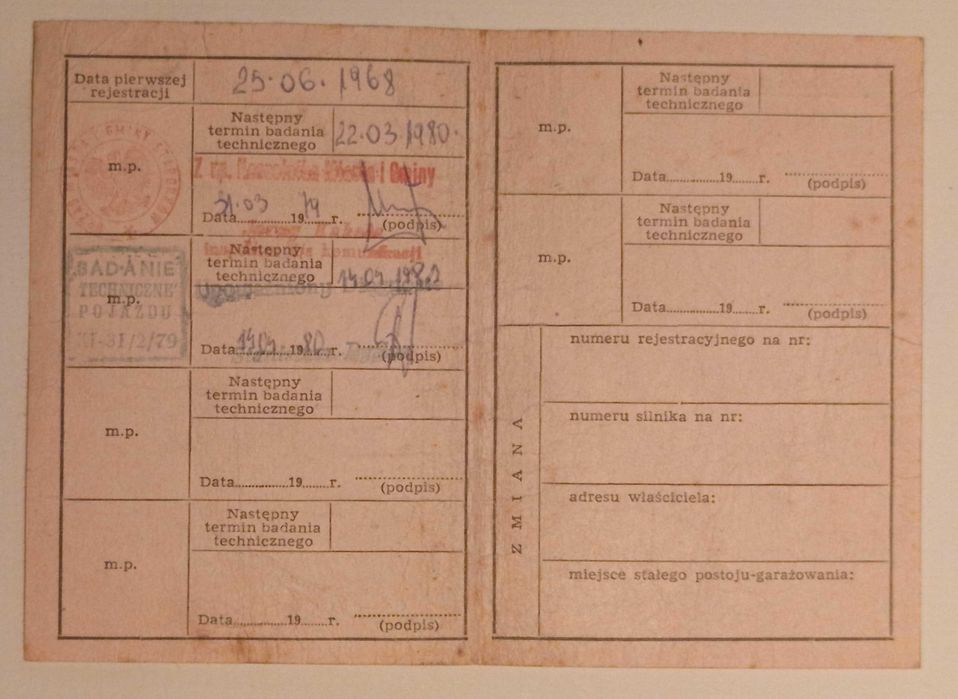 Data pierwszej
rejestracji
25.06.1968
m.p.
Następny
termin badania
technicznego
22.03.1980.
Miasta i Gminy
Data 21.03 1979 r.
(podpis)
BADANIE
TECHNICZNE
POJAZDU
XI-31/2/79
m.p.
Następny
termin badania
technicznego
komunikacji
Upoważniony
Data 1980 r.
(podpis)
m.p.
Następny
termin badania
technicznego
Data...............19.......r.
(podpis)
m.p.
Następny
termin badania
technicznego
Data...............19.......r.
(podpis)
m.p.
Następny
termin badania
technicznego
Data...............19.......r.
(podpis)
m.p.
Następny
termin badania
technicznego
Data...............19.......r.
(podpis)
ZMIANA
numeru rejestracyjnego na nr:
numeru silnika na nr:
adresu właściciela:
miejsce stałego postoju-garażowania: